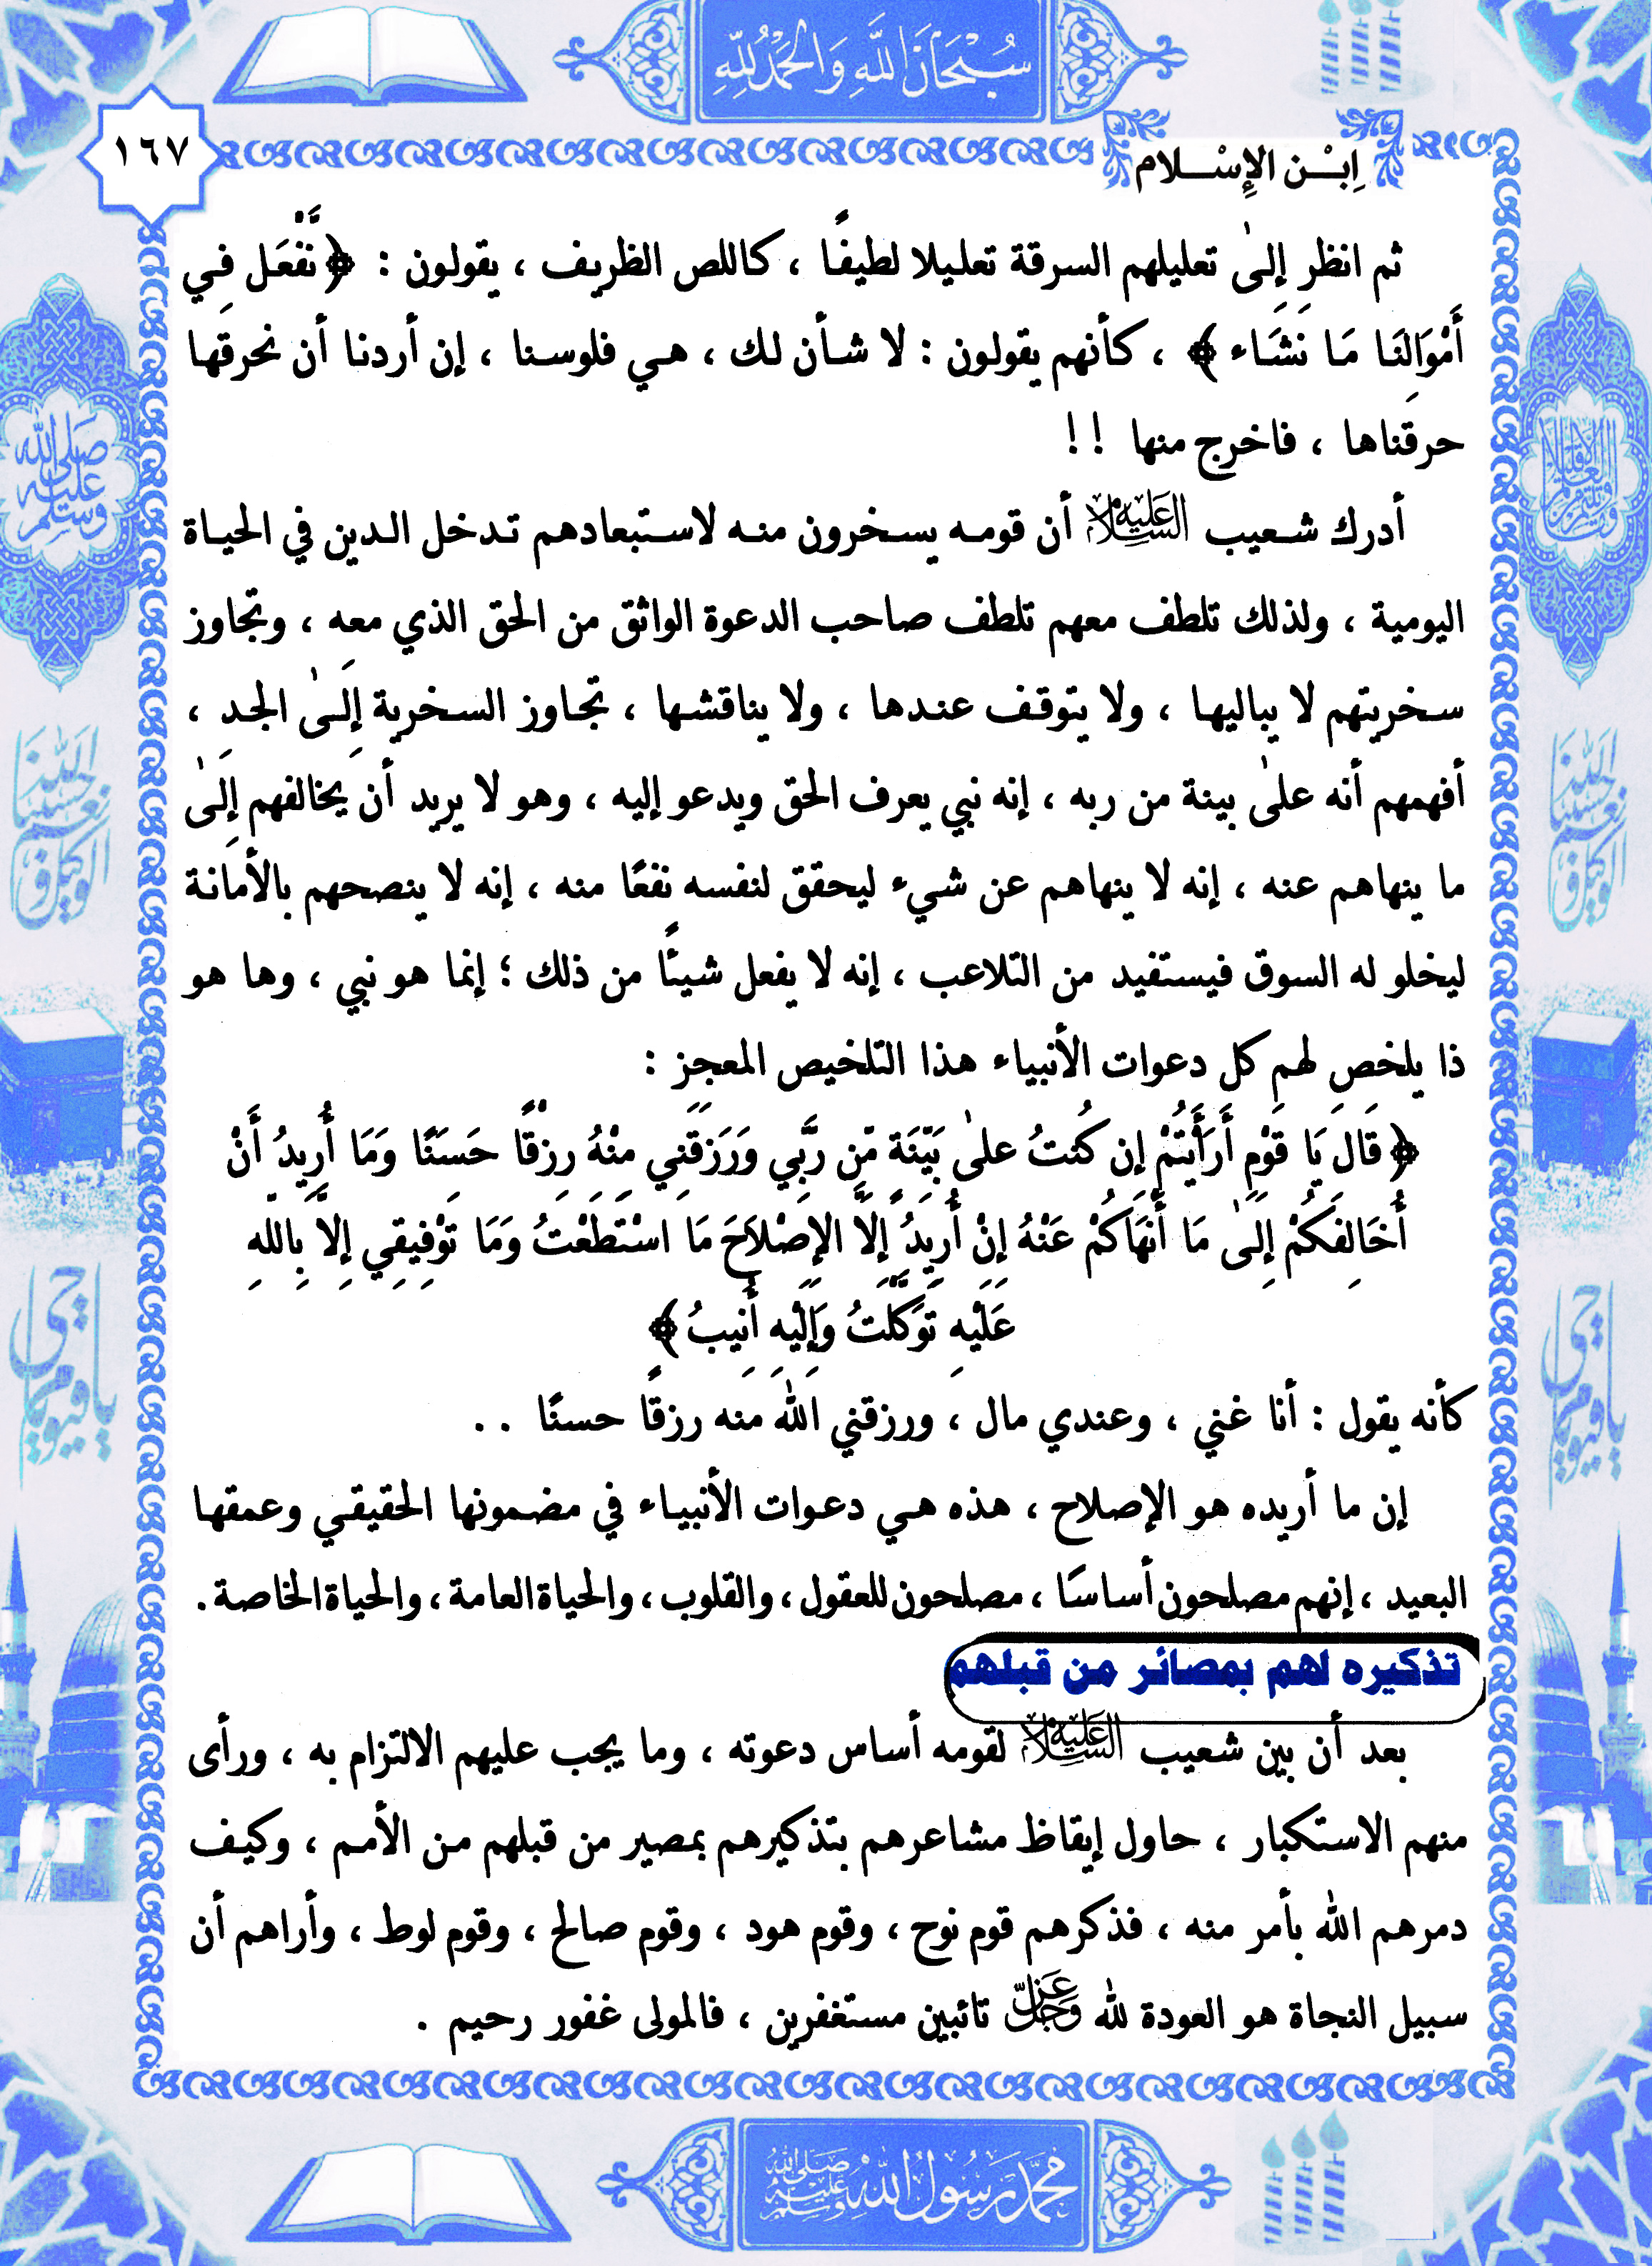 سُبْحَانَ اللَّهِ وَالْحَمْدُ لِلَّهِ
١٦٧
اِبْـن الإِسْـلام
ثم انظر إلىٰ تعليلهم السرقة تعليلا لطيفًا ، كاللص الظريف ، يقولون : ﴿ نَّفْعَل فِي
أَمْوَالِنَا مَا نَشَاء ﴾ ، كأنهم يقولون : لا شأن لك ، هي فلوسنا ، إن أردنا أن نحرقها
حرقناها ، فاخرج منها !!
أدرك شعيب عَلَيْهِ السَّلام أن قومه يسخرون منه لاستبعادهم تدخل الدين في الحياة
اليومية ، ولذلك تلطف معهم تلطف صاحب الدعوة الواثق من الحق الذي معه ، وتجاوز
سخريتهم لا يباليها ، ولا يتوقف عندها ، ولا يناقشها ، تجاوز السخرية إلَىٰ الجد ،
أفهمهم أنه علىٰ بينة من ربه ، إنه نبي يعرف الحق ويدعو إليه ، وهو لا يريد أن يخالفهم إلَىٰ
ما ينهاهم عنه ، إنه لا ينهاهم عن شيء ليحقق لنفسه نفعًا منه ، إنه لا ينصحهم بالأمانة
ليخلو له السوق فيستفيد من التلاعب ، إنه لا يفعل شيئًا من ذلك ؛ إنما هو نبي ، وها هو
ذا يلخص لهم كل دعوات الأنبياء هذا التلخيص المعجز :
﴿ قَالَ يَا قَوْمِ أَرَأَيْتُمْ إِن كُنتُ علىٰ بَيِّنَةٍ مِّن رَّبِّي وَرَزَقَنِي مِنْهُ رِزْقًا حَسَنًا وَمَا أُرِيدُ أَنْ
أُخَالِفَكُمْ إِلَىٰ مَا أَنْهَاكُمْ عَنْهُ إِنْ أُرِيدُ إِلاَّ الإِصْلاَحَ مَا اسْتَطَعْتُ وَمَا تَوْفِيقِي إِلاَّ بِاللهِ
عَلَيْهِ تَوَكَّلْتُ وَإِلَيْهِ أُنِيبُ ﴾
كأنه يقول : أنا غني ، وعندي مال ، ورزقني الله منه رزقًا حسنًا ..
إن ما أريده هو الإصلاح ، هذه هي دعوات الأنبياء في مضمونها الحقيقي وعمقها
البعيد ، إنهم مصلحون أساسًا ، مصلحون للعقول ، والقلوب ، والحياة العامة ، والحياة الخاصة .
تذكيره لهم بمصائر من قبلهم
بعد أن بين شعيب عَلَيْهِ السَّلام لقومه أساس دعوته ، وما يجب عليهم الالتزام به ، ورأى
منهم الاستكبار ، حاول إيقاظ مشاعرهم بتذكيرهم بمصير من قبلهم من الأمم ، وكيف
دمرهم الله بأمر منه ، فذكرهم قوم نوح ، وقوم هود ، وقوم صالح ، وقوم لوط ، وأراهم أن
سبيل النجاة هو العودة لله عَزَّ وَجَلَّ تائبين مستغفرين ، فالمولى غفور رحيم .
صلى الله عليه وسلم
حسبنا الله ونعم الوكيل
حسبنا الله ونعم الوكيل
يا حي يا قيوم
يا حي يا قيوم
مُحَمَّد رَسُولُ اللَّهِ صلى الله عليه وسلم